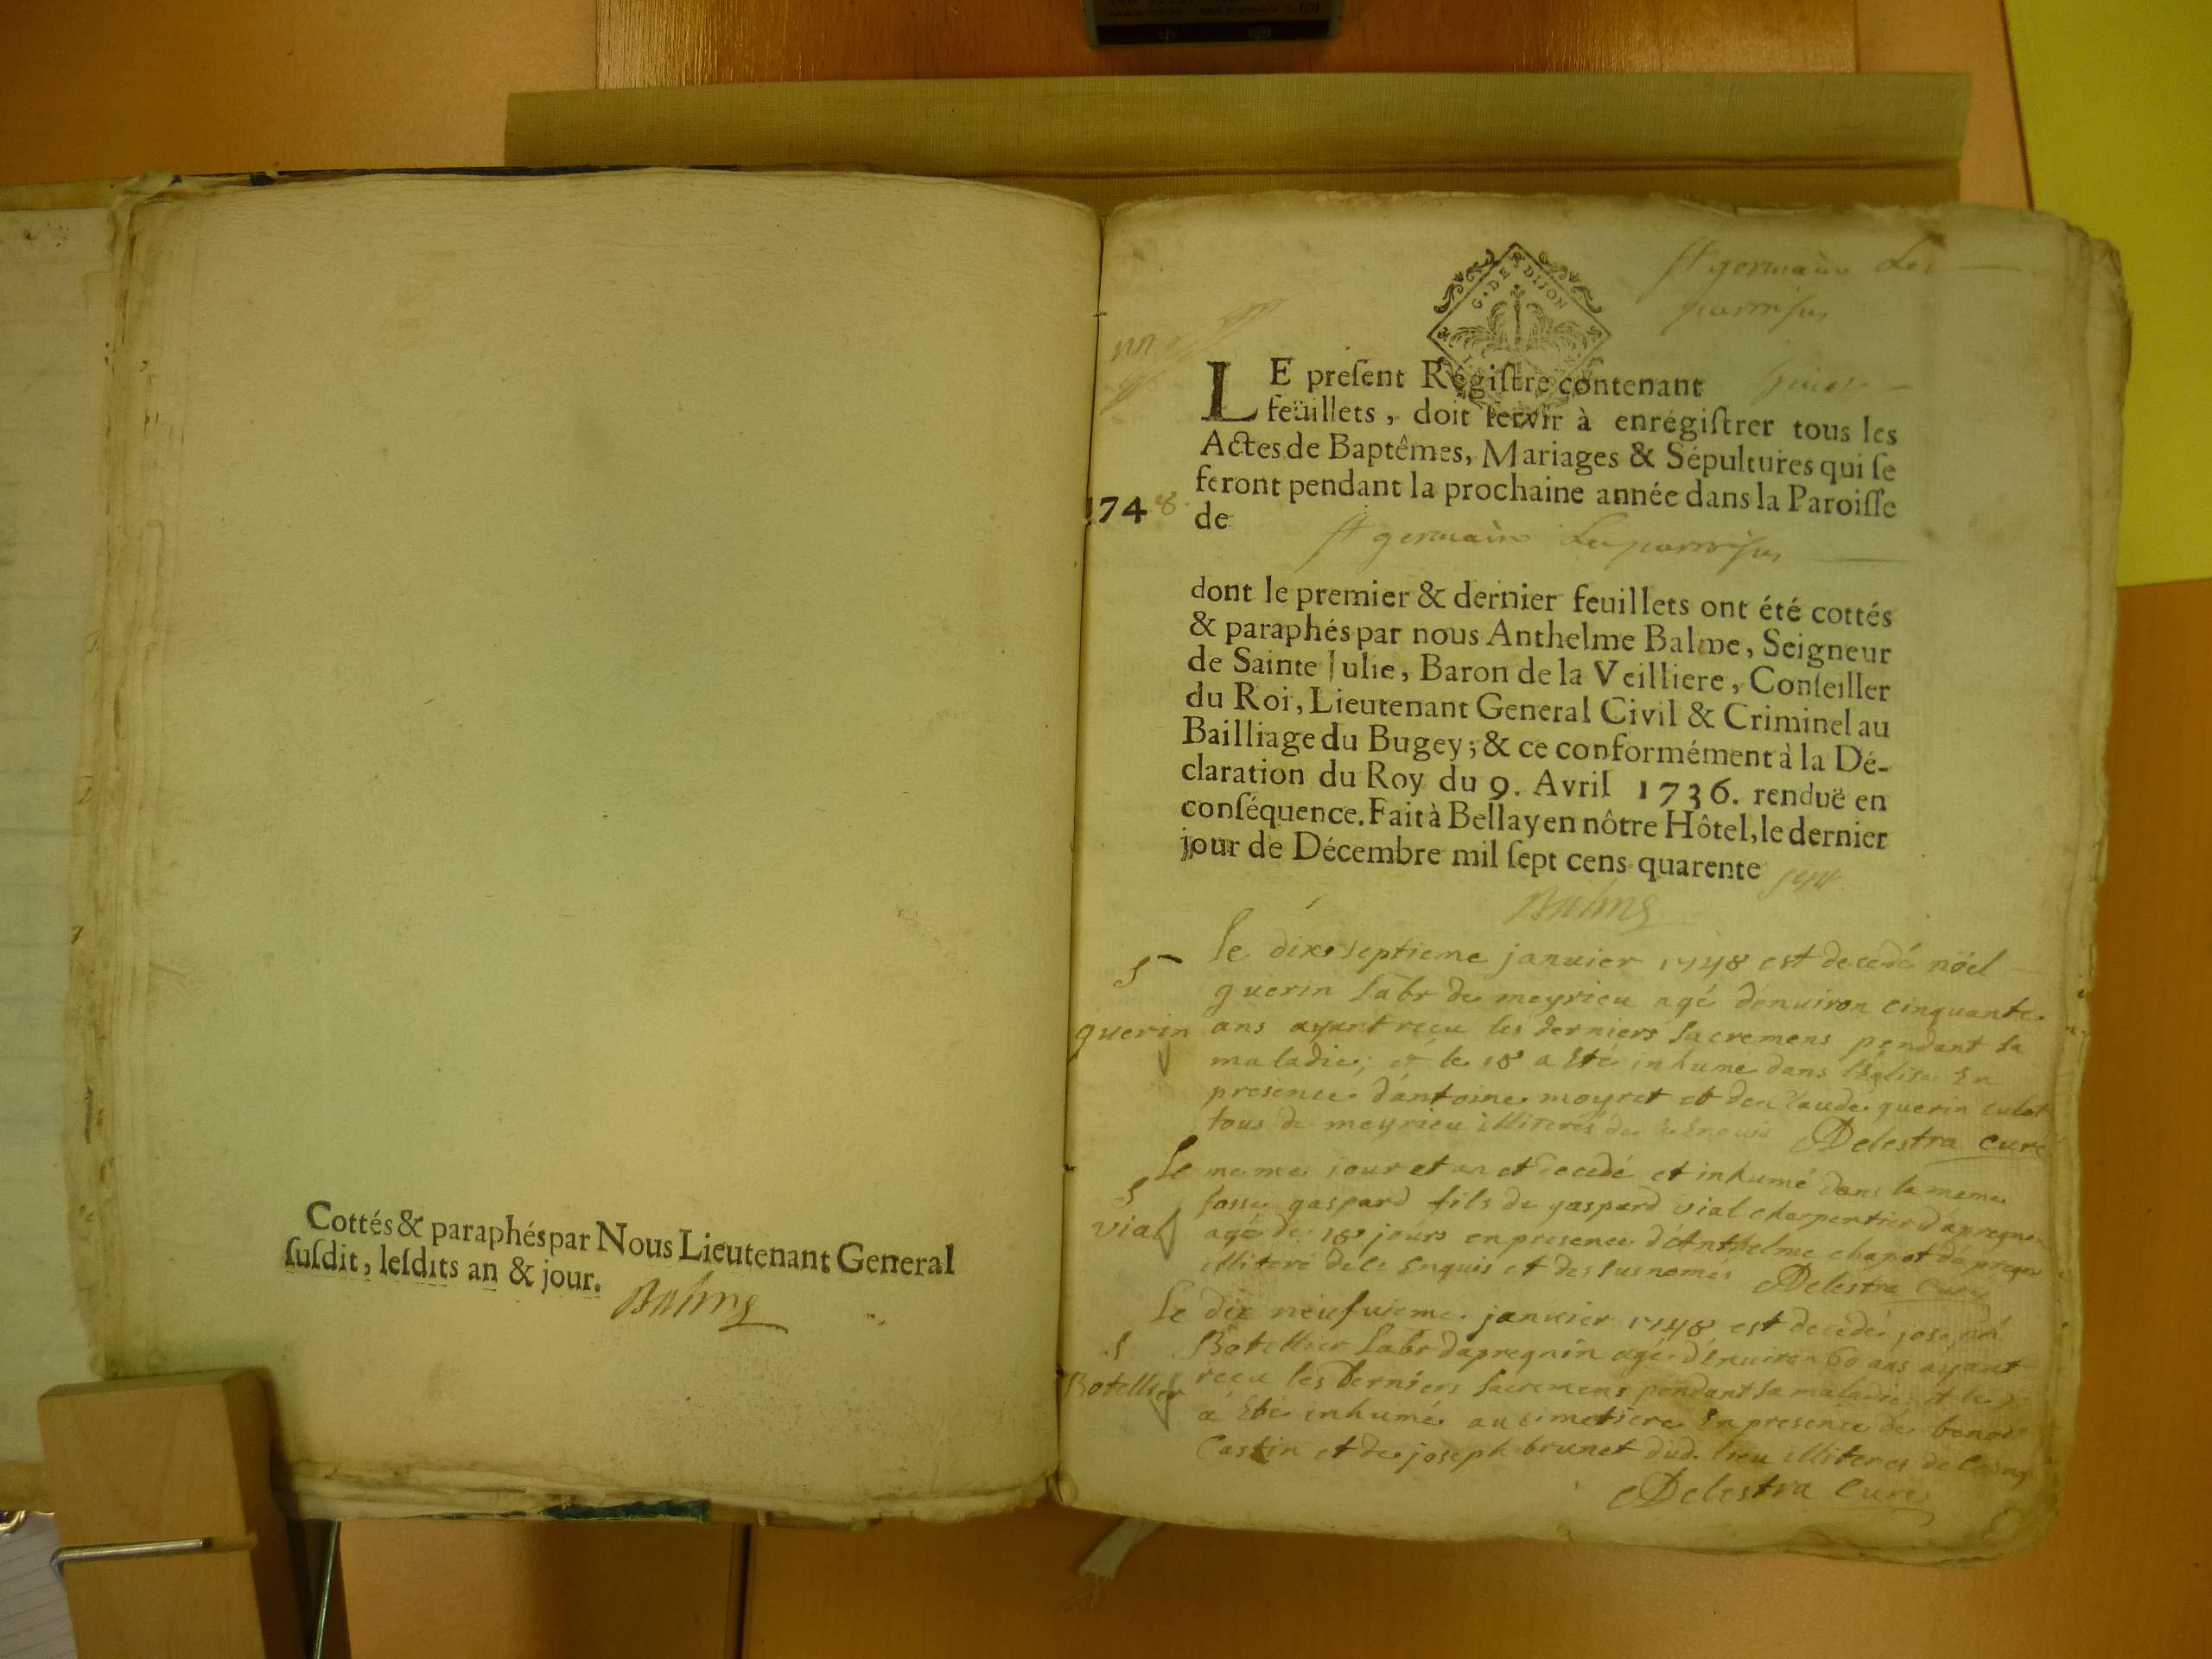 Cottés & paraphés par Nous Lieutenant General
ſuſdit, leſdits an & jour.
Balme
G. DE DIJON
st germain Les
parroisses
LE preſent Régiſtre contenant
feüillets, doit ſervir à enrégiſtrer tous les
Actes de Baptêmes, Mariages & Sépultures qui ſe
feront pendant la prochaine année dans la Paroiſſe
1748
de
st germain Les parroisses
dont le premier & dernier feuillets ont été cottés
& paraphés par nous Anthelme Balme, Seigneur
de Sainte Julie, Baron de la Veilliere, Conſeiller
du Roi, Lieutenant General Civil & Criminel au
Bailliage du Bugey; & ce conformément à la Dé-
claration du Roy du 9. Avril 1736. renduë en
conſéquence. Fait à Bellay en nôtre Hôtel, le dernier
jour de Décembre mil ſept cens quarente sept
Balme
S
guerin
le dix septieme janvier 1748 est decedé nöel
guerin labr de meyrieu agé denuiron cinquante
ans ayant recu les derniers sacremens pendant sa
maladie; et le 18 a Eté inhumé dans l'Eglise En
presence d'antoine moyret et de claude guerin
tous de meyrieu illiterés de ce Enquis Delestra curé
S
vial
Le meme jour et an et decedé et inhumé dans la meme
fosse gaspard fils de gaspard vial charpentier d'apregnin
agé de 18 jours en presence d'Anthelme chapot d'apregnin
illiteré de ce Enquis et des susnomés Delestra Curé
S
Botellier
Le dix neufuieme janvier 1748 est decedé joseph
Botellier labr dapregnin agé d'Enuiron 60 ans ayant
recu les Derniers sacremens pendant sa maladie et le
a Eté inhumé au cimetiere En presence de benoit
Castin et de joseph brunet dud. lieu illiteres de ce enq
Delestra Curé